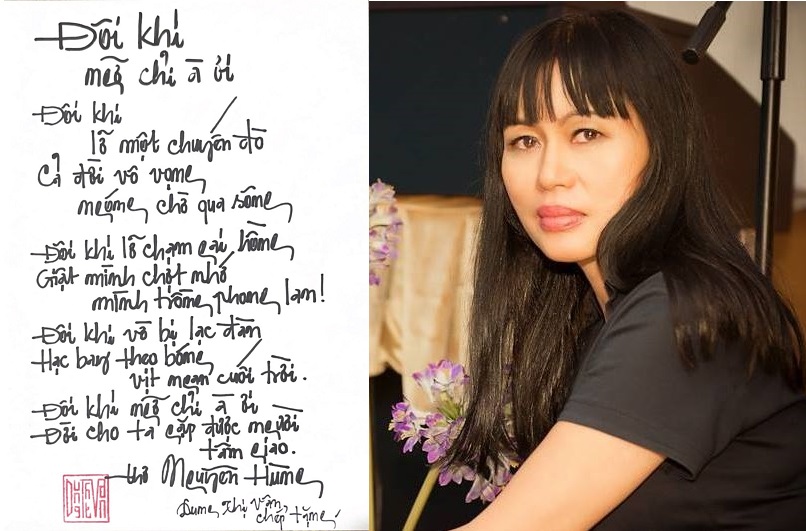 Đôi khi
ngỡ chỉ à ơi
Đôi khi
lỡ một chuyến đò
Cả đời vô vọng
ngóng chờ qua sông
Đôi khi lỡ chạm gai hồng
Giật mình chợt nhớ
mình trồng phong lan!
Đôi khi vờ bị lạc đàn
Hạc bay theo bóng
vịt ngan cuối trời.
Đôi khi ngỡ chỉ à ơi
Đời cho ta gặp được người
tâm giao.
thơ Nguyên Hùng
Dương Thị Vân,
chép tặng